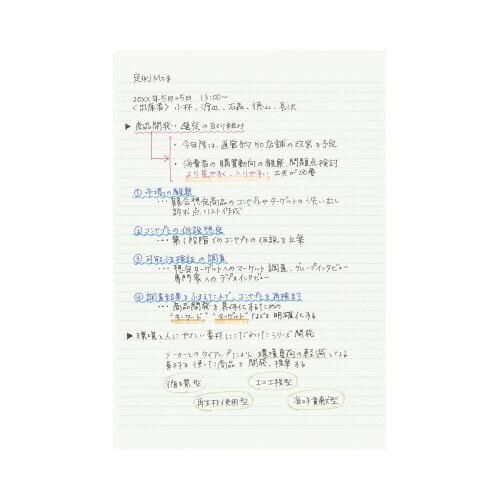 定例Mtg
20XX年5月25日 13:00〜
〈出席者〉小林、渡辺、石森、横山、長沢
▶商品開発・選定の取り組み
・今年度は、直営約50店舗の改装を予定
・消費者の購買動向の観察、問題点検討
より見やすく、入りやすい工夫が必要
①市場の観察
・・・競合想定商品のコンセプトやターゲットの洗い出し
訴求点リスト作成
②コンセプトの仮説想定
・・・第1段階でのコンセプトの仮説を立案
③可能性検証の調査
・・・想定ターゲットへのマーケット調査、グループインタビュー
専門家へのデプスインタビュー
④調査結果をふまえた上で、コンセプトを再検討
・・・商品開発を具体化するための
"キーワード" "ターゲット"などを明確化する
▶環境と人にやさしい素材にこだわったシリーズ開発
メーカーとのタイアップにより、環境負荷の軽減となる
素材を使った商品を開発、提案する
循環型
エコ工程型
再生材使用型
省エネ貢献型